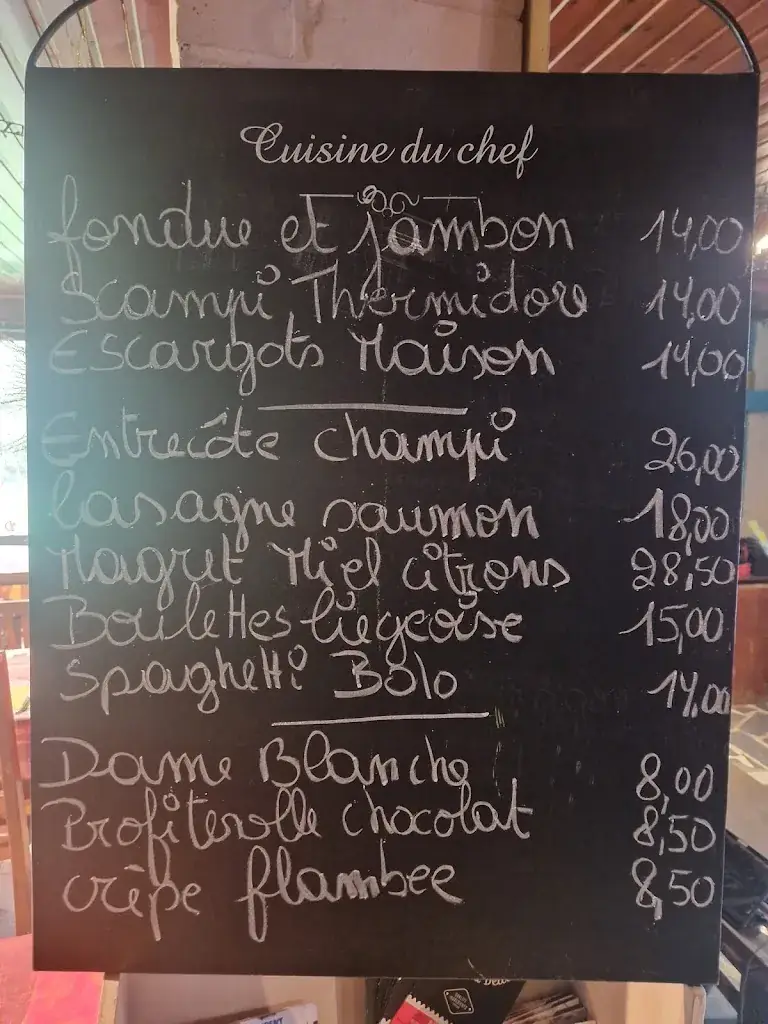 Cuisine du chef
fondue et jambon 14,00
Scampi Thermidore 14,00
Escargots Maison 14,00
Entrecôte champi 26,00
Lasagne saumon 18,00
Magret Miel citrons 28,50
Boulettes liégeoise 15,00
Spaghetti Bolo 14,00
Dame Blanche 8,00
Profiterolle chocolat 8,50
crêpe flambee 8,50